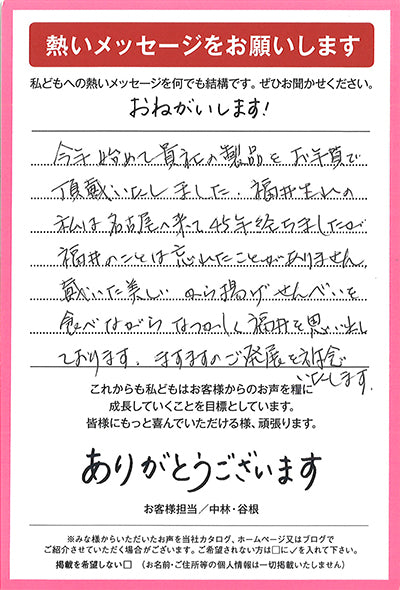 熱いメッセージをお願いします
私どもへの熱いメッセージを何でも結構です。ぜひお聞かせください。
おねがいします!
今年始めて貴社の製品をお年賀で
頂戴いたしました、福井生れの
私は名古屋へ来て45年経ちましたが
福井のことは忘れたことがありません。
戴いた美しい から揚げせんべいを
食べながら なつかしく福井を思い出し
ております。ますますのご発展を祈念
いたします。
これからも私どもはお客様からのお声を糧に
成長していくことを目標としています。
皆様にもっと喜んでいただける様、頑張ります。
ありがとうございます
お客様担当/中林・谷根
※みな様からいただいたお声を当社カタログ、ホームページ又はブログで
ご紹介させていただく場合がございます。ご希望されない方は□に✓を入れて下さい。
掲載を希望しない□ (お名前・ご住所等の個人情報は一切掲載いたしません)